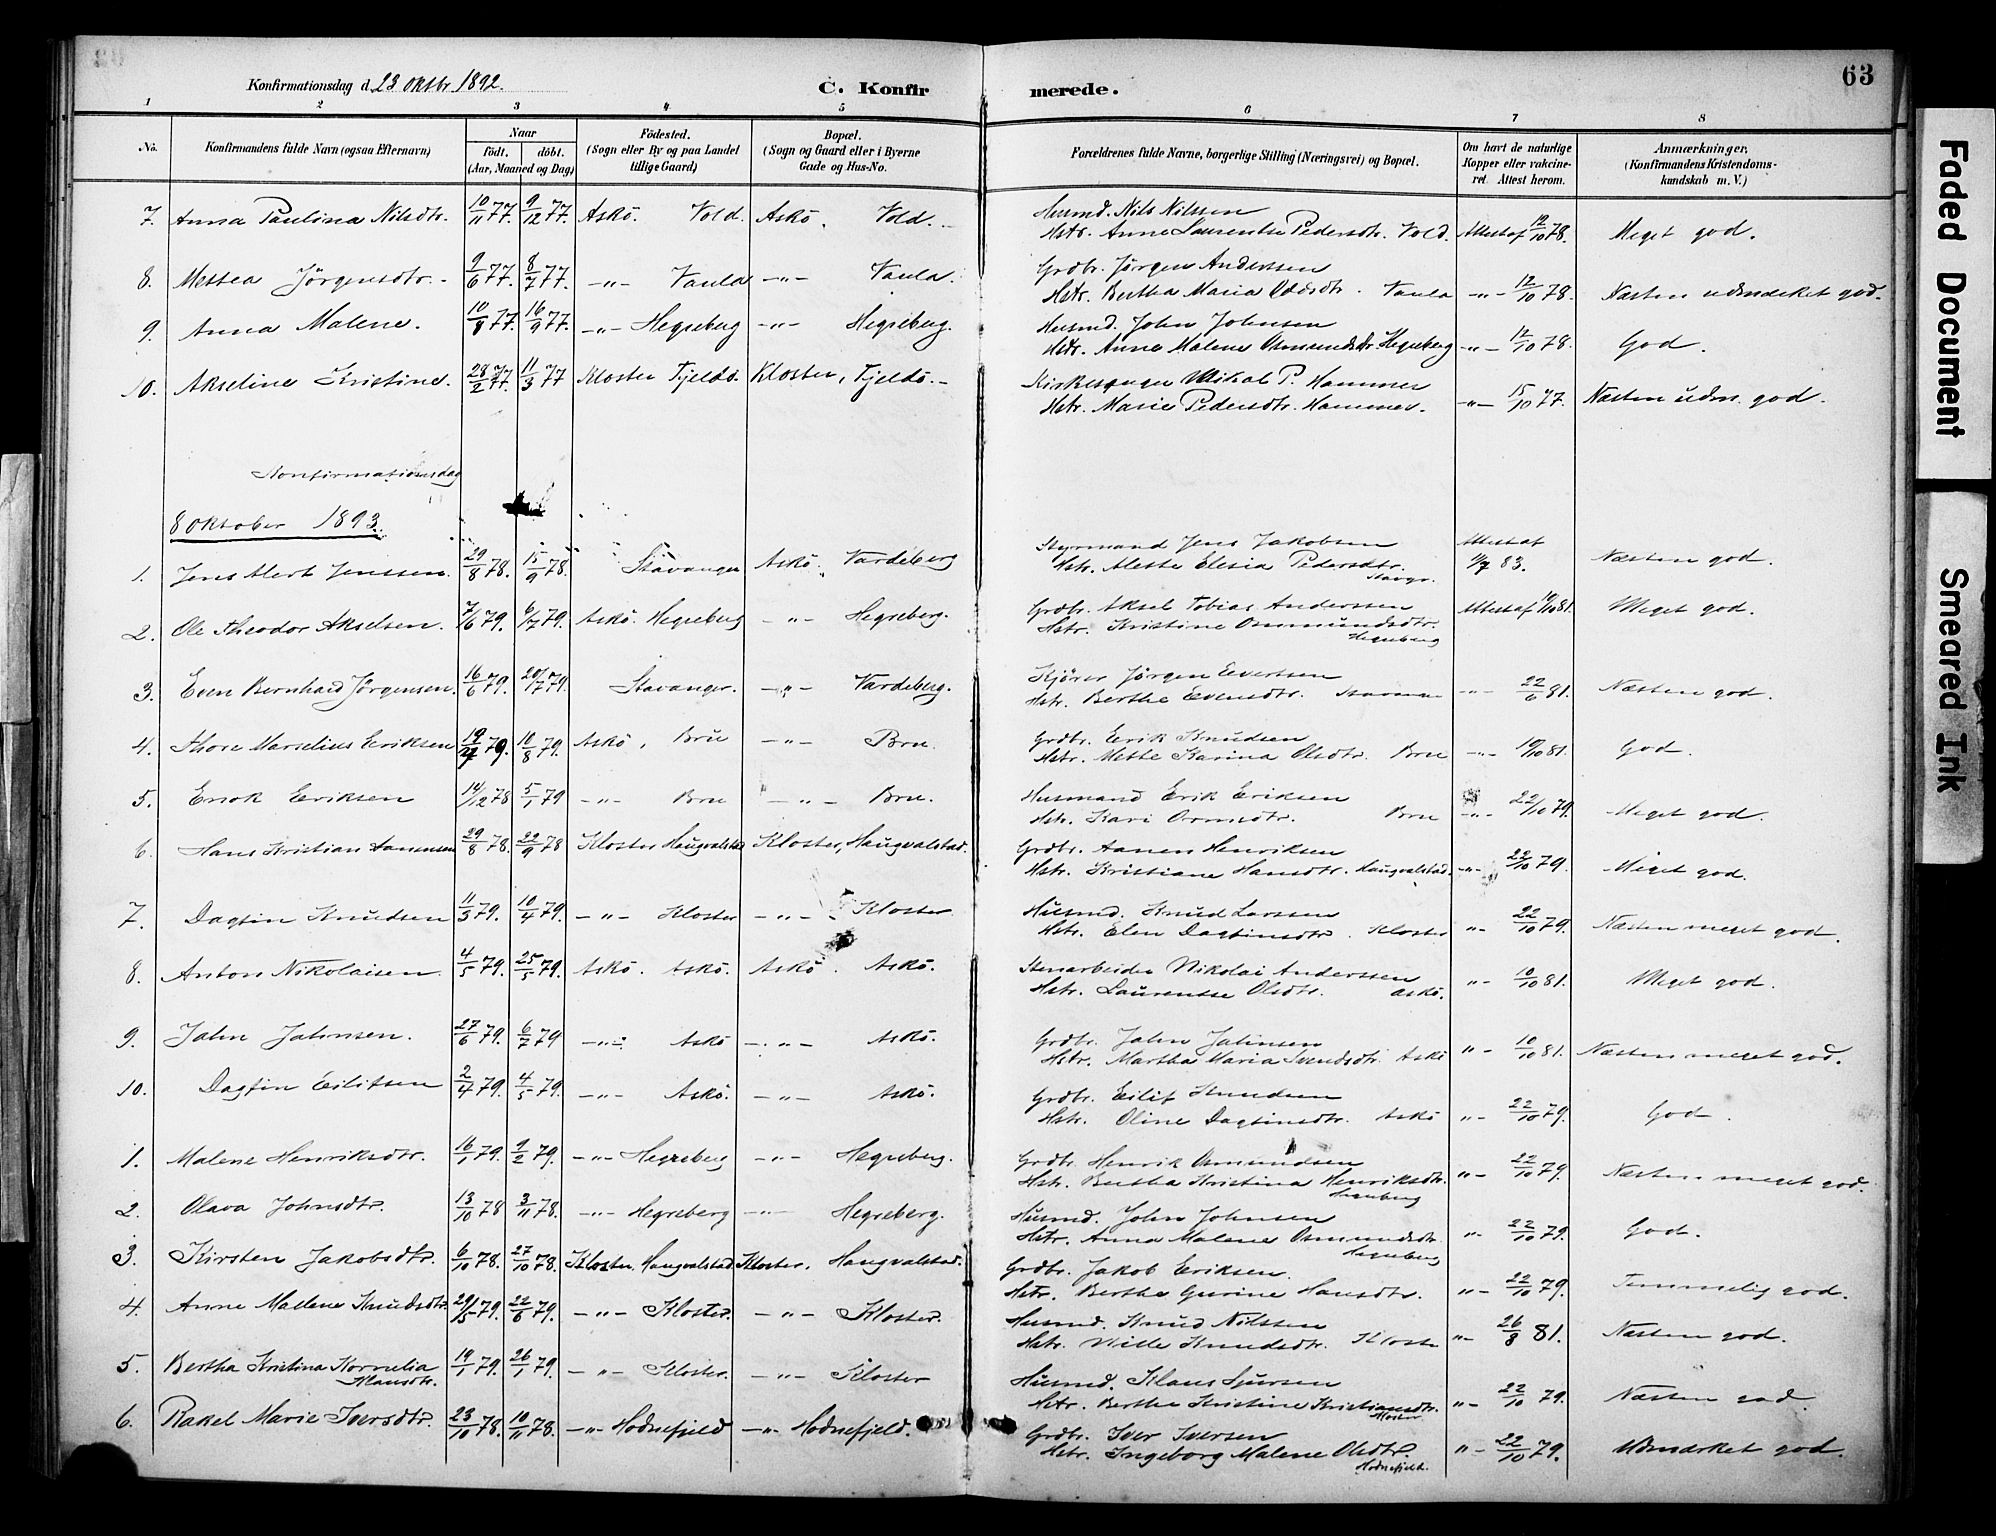 63
Konfirmationsdag d. 23 Oktbr. 1892.
C. Konfirmerede.
1 2 3 4 5 6 7 8
No. Konfirmandens fulde Navn (ogsaa Efternavn) Naar født. døbt. (Aar, Maaned og Dag) Fødested. (Sogn eller By og paa Landet tillige Gaard) Bopæl. (Sogn og Gaard eller i Byerne Gade og Hus-No. Forældrenes fulde Navne, borgerlige Stilling (Næringsvei) og Bopæl. Om havt de naturlige Kopper eller vakcineret. Attest herom. Anmærkninger, (Konfirmandens Kristendomskundskab m. V.)
7. Anna Paulina Nilsdtr. 10/11 77. 9/12 77. Askö. Vold. Askö. Vold. Husmd. Nils Nilssen
Hstr. Anne Laurentse Pedersdtr. Vold. Attest af 12/10 78. Meget god.
8. Mettea Jörgensdtr. 9/6 77. 8/7 77. -"- Vaula -"- Vaula. Grdbr. Jörgen Anderssen
Hstr. Bertha Maria Oddsdtr. Vaula -"- 12/10 78. Næsten udmærket god.
9. Anna Malene. 10/8 77. 16/9 77. -"- Hegreberg -"- Hegreberg. Husmd. John Johnsen
Hstr. Anne Malene Osmundsdtr. Hegreberg -"- 12/10 78. God.
10. Akseline Kristine. 28/2 77. 11/3 77 Kloster Fjeldö. Kloster, Fjeldö. Kirkesanger Mikal P. Hammer
Hstr. Marie Pedersdtr. Hammer. -"- 15/10 77. Næsten udm. god.
Konfirmationsdag
8 Oktober 1893.
1. Jens Alert Jenssen. 29/8 78. 15/9 78. Stavanger Askö. Vardeberg Styrmand Jens Jakobsen
Hstr. Mette Elesia Pedersdtr. Stavgr. Attest af 1/7 83. Næsten god.
2. Ole Theodor Akselsen. 7/6 79. 6/7 79. Askö. Hegreberg -"- Hegreberg. Grdbr. Aksel Tobias Anderssen
Hstr. Kristine Osmundsdtr. Hegreberg Attest af 10/10 81. Meget god.
3. Even Bernhard Jörgensen. 16/6 79. 20/7 79. Stavanger. -"- Vardeberg. Kjörer Jörgen Evertsen
Hstr. Berthe Evensdtr. -"- 22/6 81. Næsten god.
4. Thore Marselius Eriksen 19/7 79. 10/8 79. Askö, Bru -"- Bru. Grdbr. Erik Knudsen
Hstr. Mette Karina Olsdtr. Bru -"- 10/10 81. God.
5. Enok Eriksen 14/12 78 5/1 79 -"- Bru -"- Bru. Husmand Erik Eriksen
Hstr. Kari Ormsdtr. Bru -"- 22/10 79. Meget god.
6. Hans Kristian Aanensen 29/8 78. 22/9 78 Kloster Haugvalstad Kloster, Haugvalstad. Grdbr. Aanen Henriksen
Hstr. Kristiane Hansdtr. Haugvalstad. -"- 22/10 79. Meget god.
7. Dagfin Knudsen 11/3 79. 10/4 79. -"- Kloster -"- Kloster Husmd. Knud Larssen
Hstr. Elen Dagfinsdtr. Kloster "- 22/10 79. Næsten meget god.
8. Anton Nikolaisen. 4/5 79. 25/5 79. Askö. Askö. Askö. Askö. Stenarbeider Nikolai Anderssen
Hstr. Laurentse Olsdtr. Askö. "- 10/10 81. Meget god.
9. John Johnsen. 27/6 79. 6/7 79 -"- Askö -"- Askö. Grdbr. John Johnsen
Hstr. Martha Maria Svendsdtr. Askö "- 10/10 81. Næsten meget god.
10. Dagfin Eilifsen 2/4 79. 4/5 79. -"- Askö. -"- Askö. Grdbr. Eilif Knudsen
Hstr. Oline Dagfinsdtr. Askö "- 22/10 79. God.
1. Malene Henriksdtr. 16/1 79. 9/2 79. -"- Hegreberg -"- Hegreberg. Grdbr. Henrik Osmundsen
Hstr. Bertha Kristina Henriksdtr. Hegreberg "- 22/10 79. Næsten meget god.
2. Olava Johnsdtr. 13/10 78 3/11 78. -"- Hegreberg -"- Hegreberg. Husmd. John Johnsen
Hstr. Anna Malene Osmundsdtr. Hegreberg "- 22/10 79. God.
3. Kirsten Jakobsdtr. 6/10 78. 27/10 78. Kloster. Haugvalstad Kloster. Haugvalstad. Grdbr. Jakob Eriksen.
Hstr. Berthe Gurine Hansdtr. "- 22/10 79. Temmelig god.
4. Anne Malene Knudsdtr. 29/5 79. 22/6 79. -"- Kloster. -"- Kloster. Husmd. Knud Nilssen
Hstr. Knudsdtr. Kloster "- 26/8 81. Næsten god.
5. Bertha Kristina Kornelia Klausdtr. 19/1 79. 26/1 79. -"- Kloster. -"- Kloster Husmd. Klaus Sjursen
Hstr. Berthe Kristine Kristiansdtr. Kloster "- 22/10 79. Næsten god.
6. Rakel Marie Iversdtr. 23/10 78. 10/11 78. -"- Hodnefjeld -"- Hodnefjeld. Grdbr. Iver Iversen
Hstr. Ingeborg Malene Olsdtr. Hodnefjeld. "- 22/10 79. Udmærket god.
Faded Document
Smeared Ink